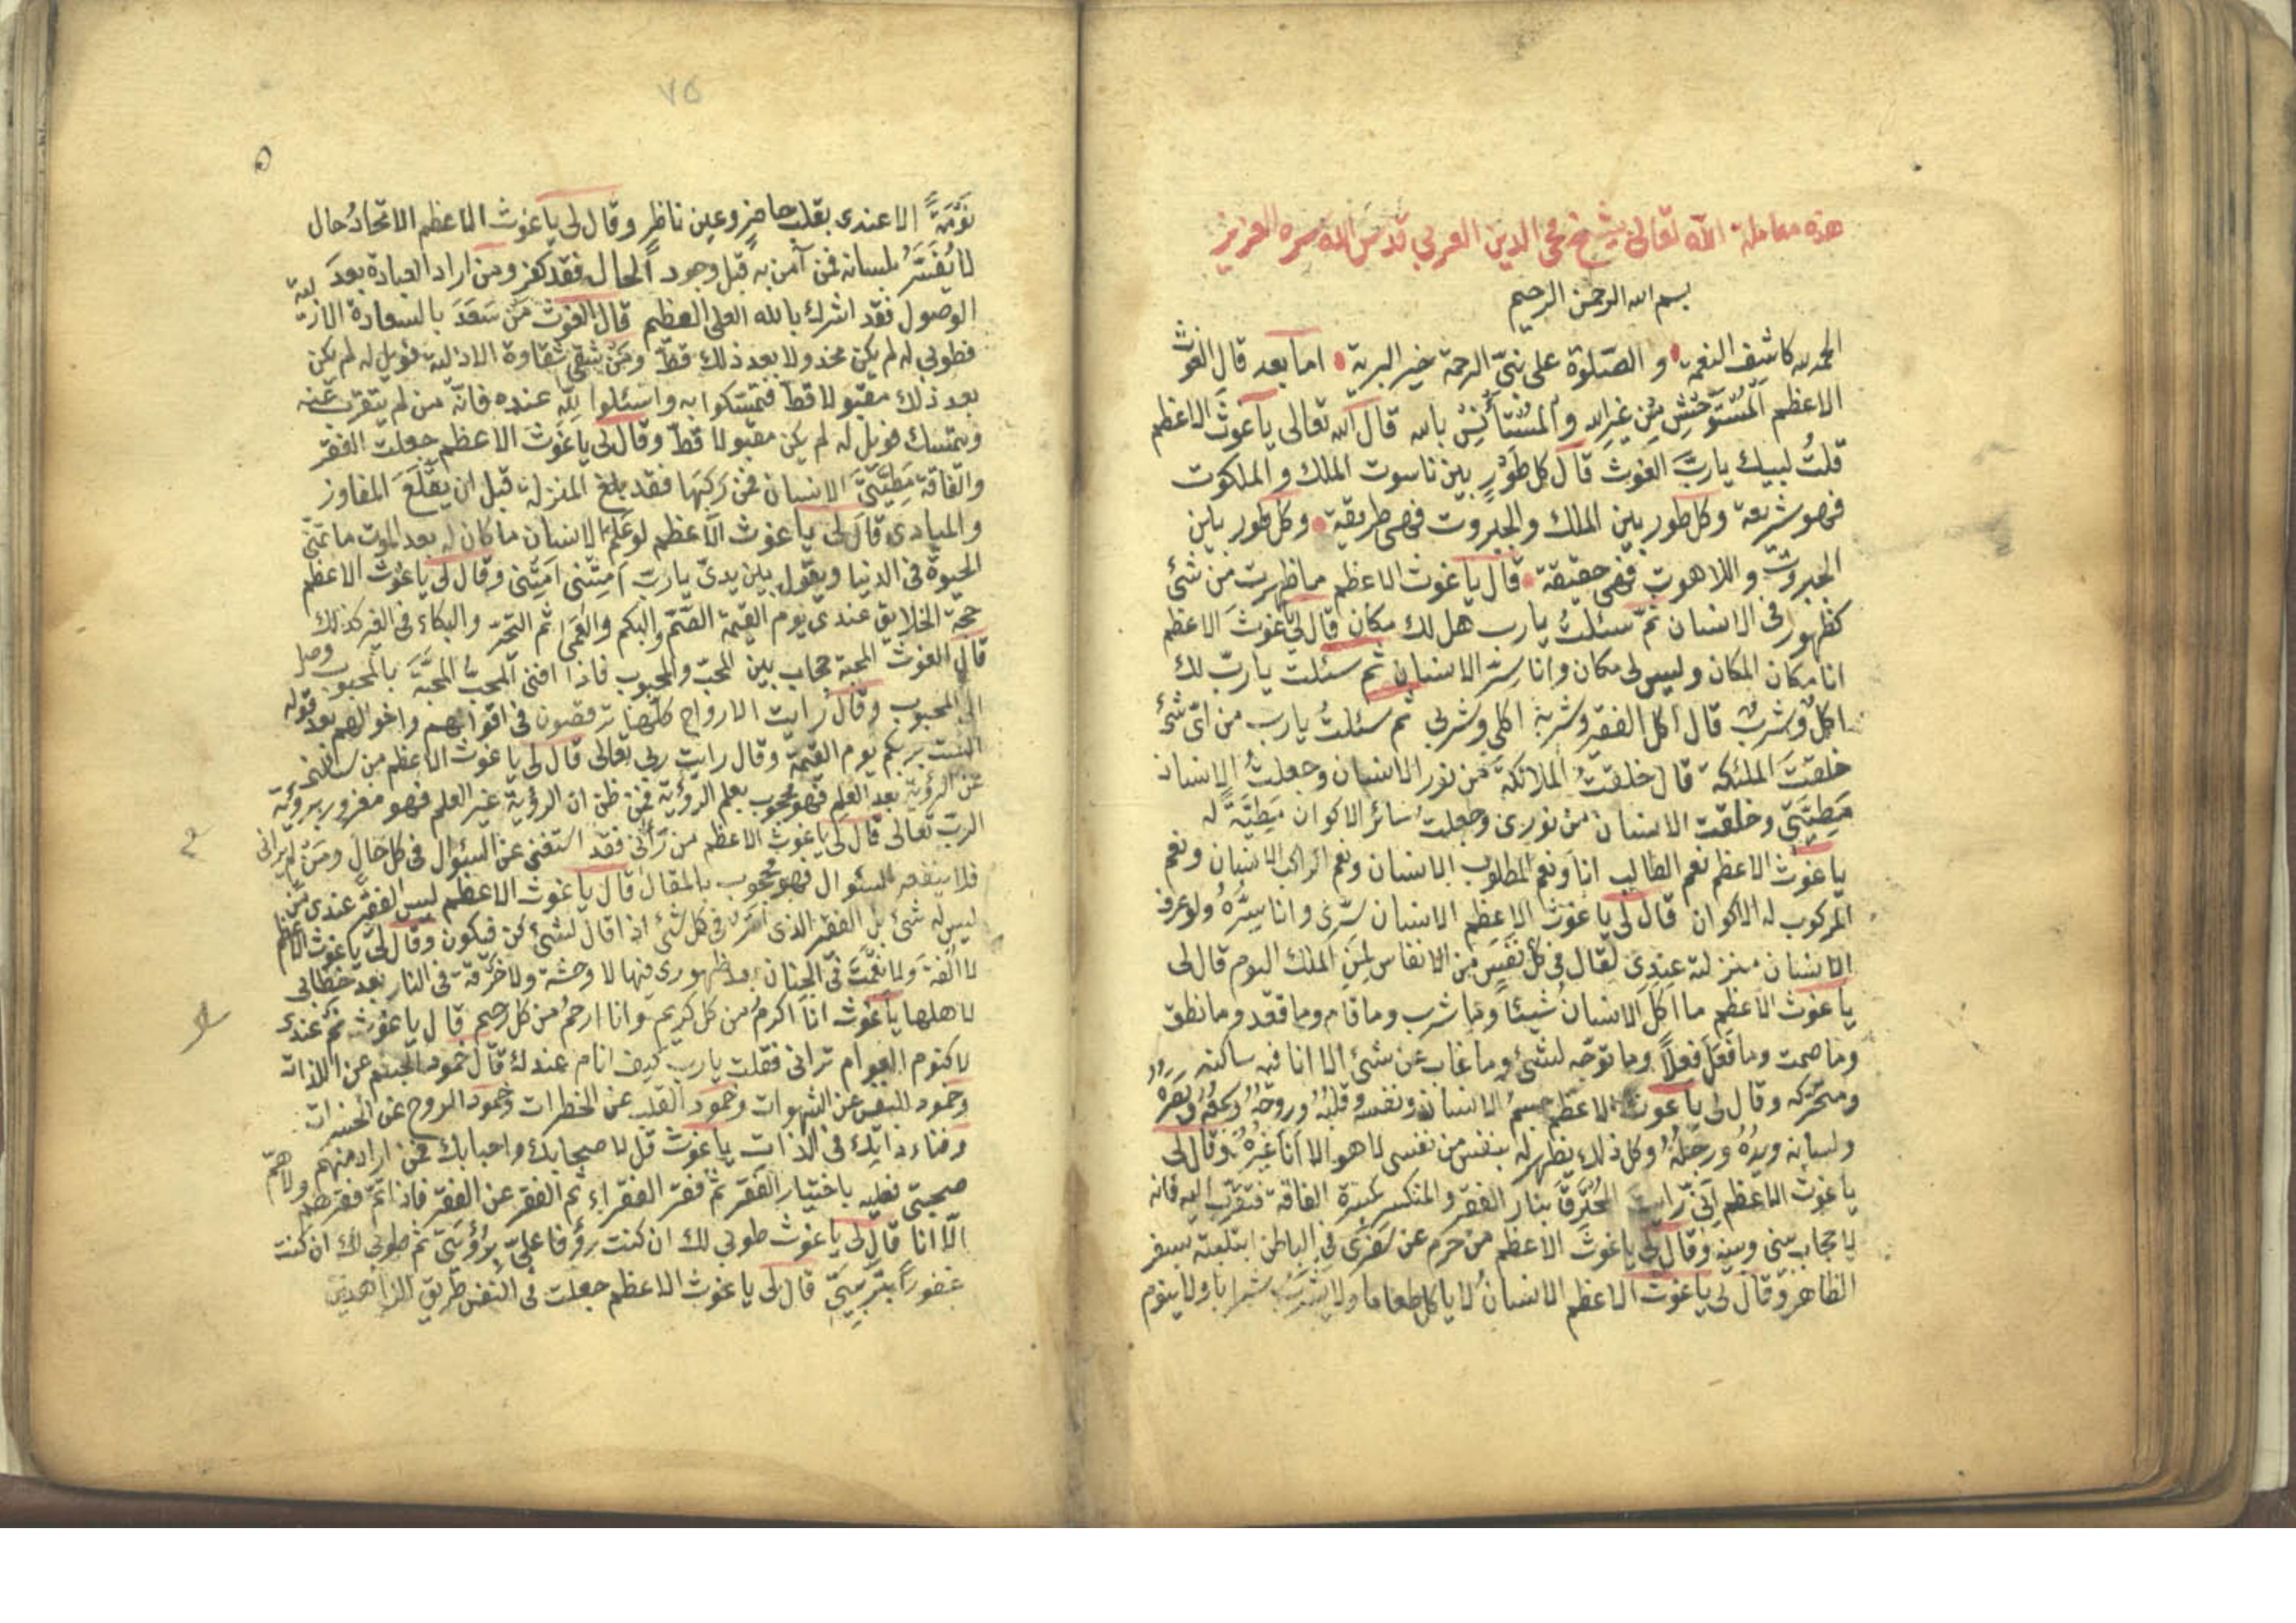 هذه معاملة الله تعالى بشيخ محي الدين العربي قدس الله سره العزيز
بسم الله الرحمن الرحيم
الحمد لله كاشف الغمة والصّلوة على نبيّ الرحمة خير البرية اما بعد قال الغوث
الاعظم المستوحش من غير الله والمستأنس بالله قال الله تعالى يا غوث الاعظم
قلت لبيك يا ربّ الغوث قال كل طور بين ناسوت الملك والملكوت
فهو شريعة وكل طور بين الملك والجبروت فهى طريقة وكل طور بين
الجبروت واللاهوت فهى حقيقة قال يا غوث الاعظم ما ظهرت من شئ
كظهورى فى الانسان ثم سئلت يا رب هل لك مكان قال لى غوث الاعظم
انا مكان المكان وليس لى مكان وانا سرّ الانسان ثم سئلت يا ربّ لك
اكل وشرب قال اكل الفقر وشربة اكلى وشربى ثم سئلت يا رب من اىّ شئ
خلقت الملئكة قال خلقت الملائكة من نور الانسان وجعلت الانسان
مطيّتى وخلقت الانسان من نورى وجعلت سائر الاكوان مطيّة له
يا غوث الاعظم نعم الطالب انا ونعم المطلوب الانسان ونعم الراكب الانسان ونعم
المركوب له الاكوان قال لى يا غوث الاعظم الانسان سرّى وانا سرّه ولو عرف
الانسان منزلته عندى لقال فى كل نفس من الانفاس لمن الملك اليوم قال لى
يا غوث الاعظم ما اكل الانسان شيئا وما شرب وما قام وما قعد وما نطق
وما صمت وما فعل فعلاً وما توجّه لشئ وما غاب عن شئ الا انا فيه ساكنه
ومتحركه وقال لى يا غوث الاعظم جسم الانسان ونفسه وقلبه وروحه وسمعه وبصره
ولسانه ويده ورجله وكل ذلك يظهر له بنفس من نفسى لا هو الا انا غيره وقال لى
يا غوث الاعظم اذا رايت المحرّق بنار الفقر والمنكسر بكثرة الفاقة فتقرّب اليه فانه
لا حجاب بينى وبينه وقال لى يا غوث الاعظم من حرم عن سفرى فى الباطن ابتليته بسفر
الظاهر وقال لى يا غوث الاعظم الانسان لا ياكل طعاما ولا يشرب شرابا ولا ينوم
٧٥
نومةً الا عندى بقلب حاضر وعين ناظر وقال لى يا غوث الاعظم الاتحاد حال
لا يفسّر بلسانه فمن آمن به قبل وجود الحال فقد كفر ومن اراد العبادة بعد
الوصول فقد اشرك بالله العلى العظيم قال الغوث من سعد بالسعادة الازلية
فطوبى له لم يكن مخذولا بعد ذلك قطّ ومن شقى شقاوة الازلية فويل له لم يكن
بعد ذلك مقبولا قطّ فتمسّكوا به واسئلوا لله عنده فانّه من لم يتقرب عنه
ويتمسك فويل له لم يكن مقبولا قطّ وقال لى يا غوث الاعظم جعلت الفقر
والفاقة مطيّتى الانسان فمن ركبها فقد بلغ المنزلة قبل ان يقلع المفاوز
والبوادى قال لى يا غوث الاعظم لو علم الانسان ما كان له بعد الموت ما تمنّى
الحيوة فى الدنيا ويقول بين يدىّ يا ربّ امتنى امتنى وقال لى يا غوث الاعظم
حجة الخلايق عندى يوم القيمة الصّمّ والبكم والعمى ثم التحيّر والبكاء فى القبر كذلك
قال الغوث المحبة حجاب بين المحبّ والمحبوب فاذا افنى المحبّ المحبّة بالمحبوب وصل
الى المحبوب وقال رايت الارواح كلّها ترقصون فى اقوالهم واحوالهم بعد قوله
الست بربكم يوم القيمة وقال رايت ربى تعالى قال لى يا غوث الاعظم من سالنى
عن الرؤية بعد العلم فهو محجوب بعلم الرؤية فمن ظن ان الرؤية غير العلم فهو مغرور برؤية
الربّ تعالى قال لى يا غوث الاعظم من رآنى فقد استغنى عن السئوال فى كل حال ومن لم يرانى
فلا ينفعه السئوال فهو محجوب بالمقال قال يا غوث الاعظم ليس الفقير عندى من
ليس له شئ بل الفقير الذى امره فى كل شئ اذا قال لشئ كن فيكون وقال لى يا غوث الاعظم
لا الفة ولا نعمة فى الجنان بعد ظهورى فيها لا وحشة ولا حرقة فى النار بعد خطابى
لاهلها يا غوث انا اكرم من كل كريم وانا ارحم من كل رحيم قال يا غوث نم عندى
لا كنوم العوام ترانى فقلت يا رب كيف انام عندك قال خمود الجسم عن اللذات
وخمود النفس عن الشهوات وخمود القلب عن الخطرات وخمود الروح عن الحسرات
وفناء ذاتك فى الذات يا غوث قل لاصحابك واحبابك فمن اراد منهم
صحبتى فعليه باختيار الفقر ثم فقر الفقراء ثم الفقر عن الفقر فاذا تمّ فقرهم ولا هم
الّا انا قال لى يا غوث طوبى لك ان كنت رؤفا على بريّتى ثم طوبى لك ان كنت
غفوراً ببريّتى قال لى يا غوث الاعظم جعلت فى النفس طريق الزاهدين